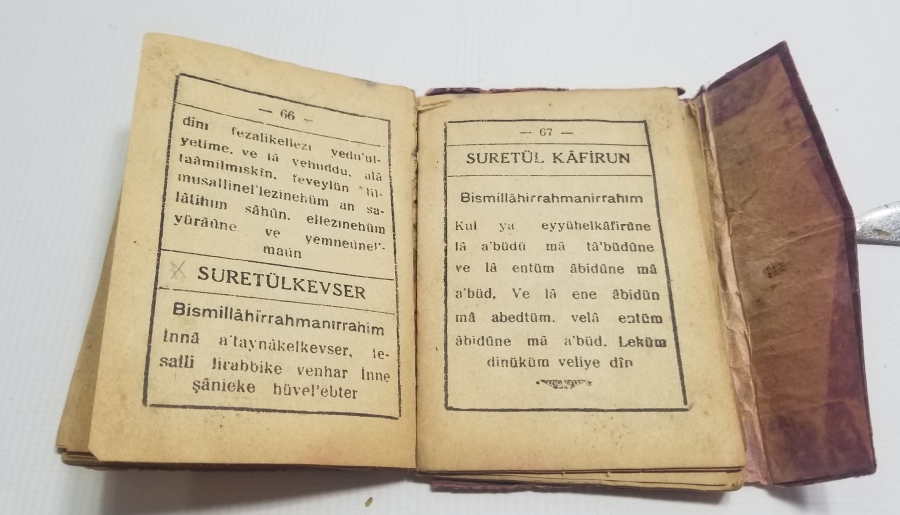 — 66 —
dini fezalikellezi yedu'ul-
yetime. ve lâ yehuddu, alâ
taâmilmiskîn, feveylün lil-
musallinel'lezinehüm an sa-
lâtihim sâhûn. ellezinehüm
yürâûne ve yemneûnel'-
maûn
SURETÜLKEVSER
Bismillâhirrahmanırrahim
İnnâ a'taynâkelkevser, fe-
salli lirabbike venhar İnne
şânieke hüvel'ebter
— 67 —
SURETÜL KÂFİRUN
Bismillâhirrahmanirrahim
Kul ya eyyühelkâfirûne
lâ a'büdü mâ tâ'büdûne
ve lâ entüm âbidûne mâ
a'büd, Ve lâ ene âbidün
mâ abedtüm. velâ entüm
âbidûne mâ a'büd. Leküm
dinüküm veliye dîn